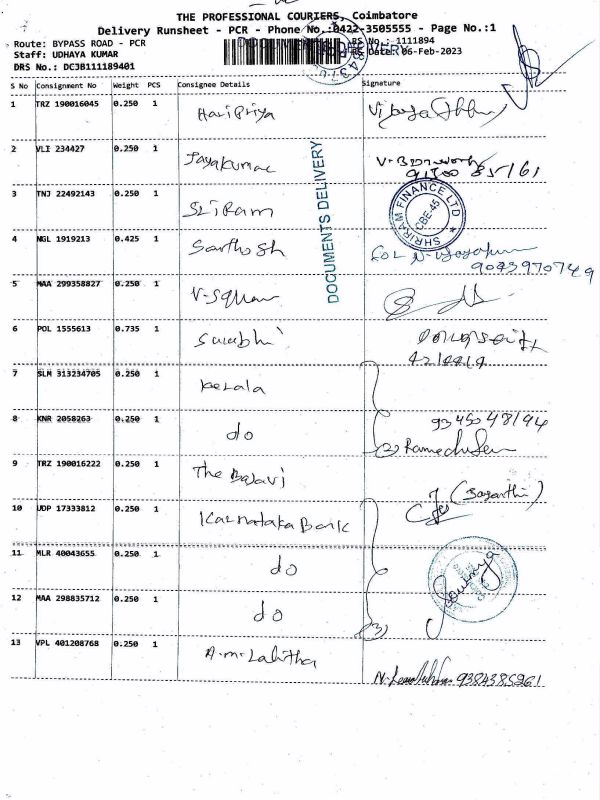 THE PROFESSIONAL COURIERS, Coimbatore
Delivery Runsheet - PCR - Phone No.:0422-3505555 - Page No.:1
Route: BYPASS ROAD - PCR
RS No.: 1111894
Staff: UDHAYA KUMAR
RS Date: 06-Feb-2023
DRS No.: DCJB111189401
DOCUMENTS DELIVERY
S No Consignment No Weight PCS Consignee Details Signature
1 TRZ 190016045 0.250 1 HariPriya
2 VLI 234427 0.250 1 Jayakumar
3 TNJ 22492143 0.250 1 SriRam
SHRIRAM FINANCE LTD
CBE-45
4 NGL 1919213 0.425 1 Santhosh
9043970749
DOCUMENTS DELIVERY
5 MAA 299358827 0.250 1 V-Square
6 POL 1555613 0.735 1 Surabhi
7 SLM 313234705 0.250 1 Kerala
8 KNR 2058263 0.250 1 do
9345048194
(2)
9 TRZ 190016222 0.250 1 The Balavi
10 UDP 17333812 0.250 1 Karnataka Bank
11 MLR 40043655 0.250 1 do
12 MAA 298835712 0.250 1 do
(3) Sowmya
13 VPL 401208768 0.250 1 A.m.Lalitha
9384385261